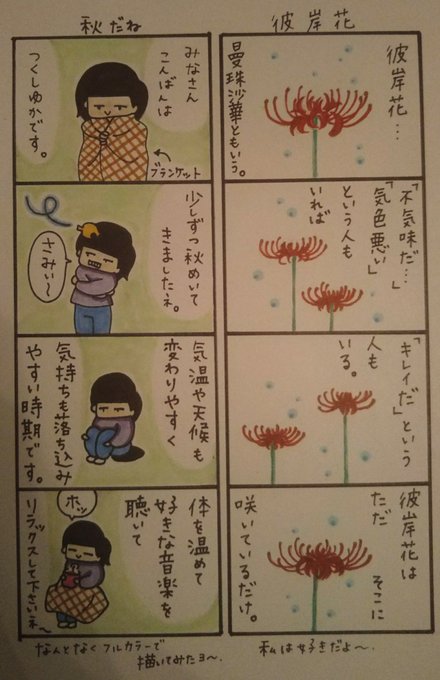 彼岸花
彼岸花…
曼珠沙華ともいう。
「不気味だ…」
「気色悪い」
という人も
いれば
「キレイだ」という
人も
いる。
彼岸花は
ただ
そこに
咲いているだけ。
私は好きだよ〜。
秋だね
みなさん
こんばんは
つくしゆかです。
ブランケット
少しずつ秋めいて
きましたネ。
さみぃ〜
気温や天候も
変わりやすく
気持ちも落ち込み
やすい時期です。
体を温めて
好きな音楽を
聴いて
リラックスして下さいネ〜
ホッ
なんとなくフルカラーで
描いてみたヨ〜